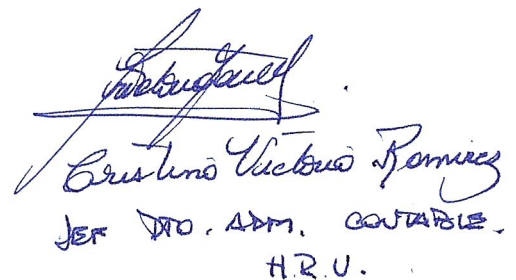 Cristina Victoria Ramirez
JEF DTO. ADM. CONTABLE.
H.R.U.